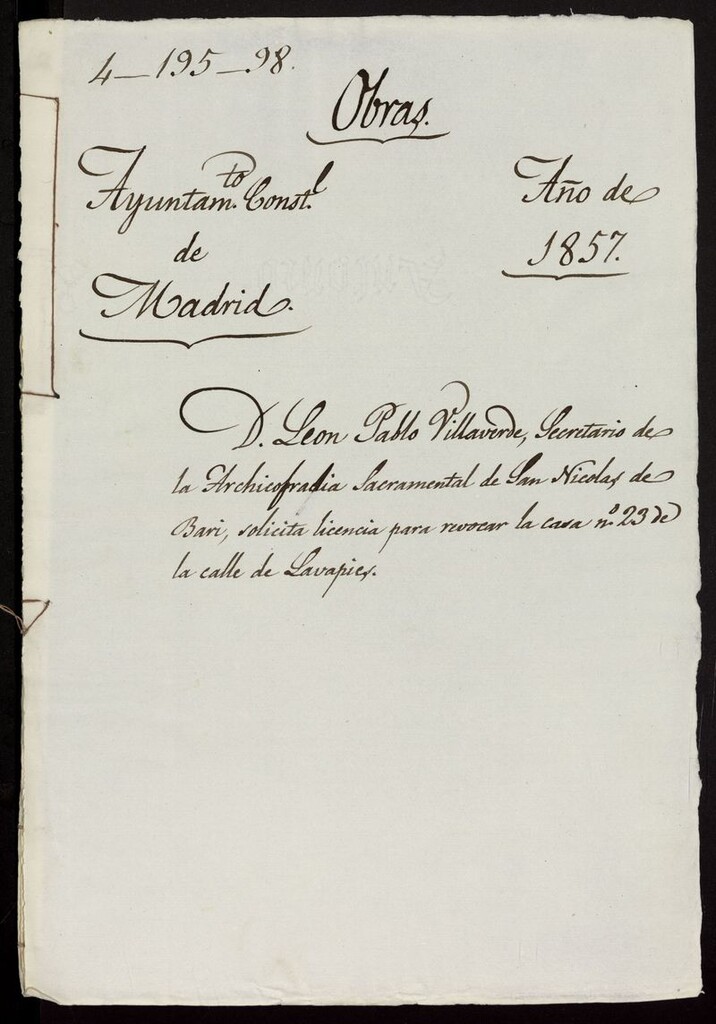 4-195-98.
Obras.
Ayuntam.to Const.l
de
Madrid.
Año de
1857.
D. Leon Pablo Villaverde, Secretario de
la Archicofradia Sacramental de San Nicolas de
Bari, solicita licencia para revocar la casa n.º 23 de
la calle de Lavapies.